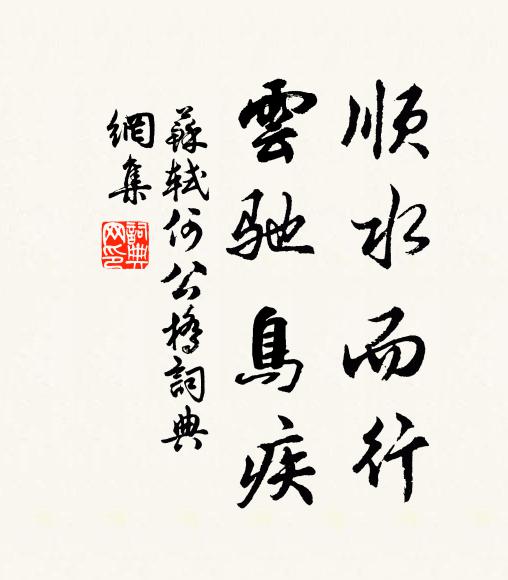 順水而行
雲馳鳥疾
蘇軾何公橋詞典
網集
詞典网印